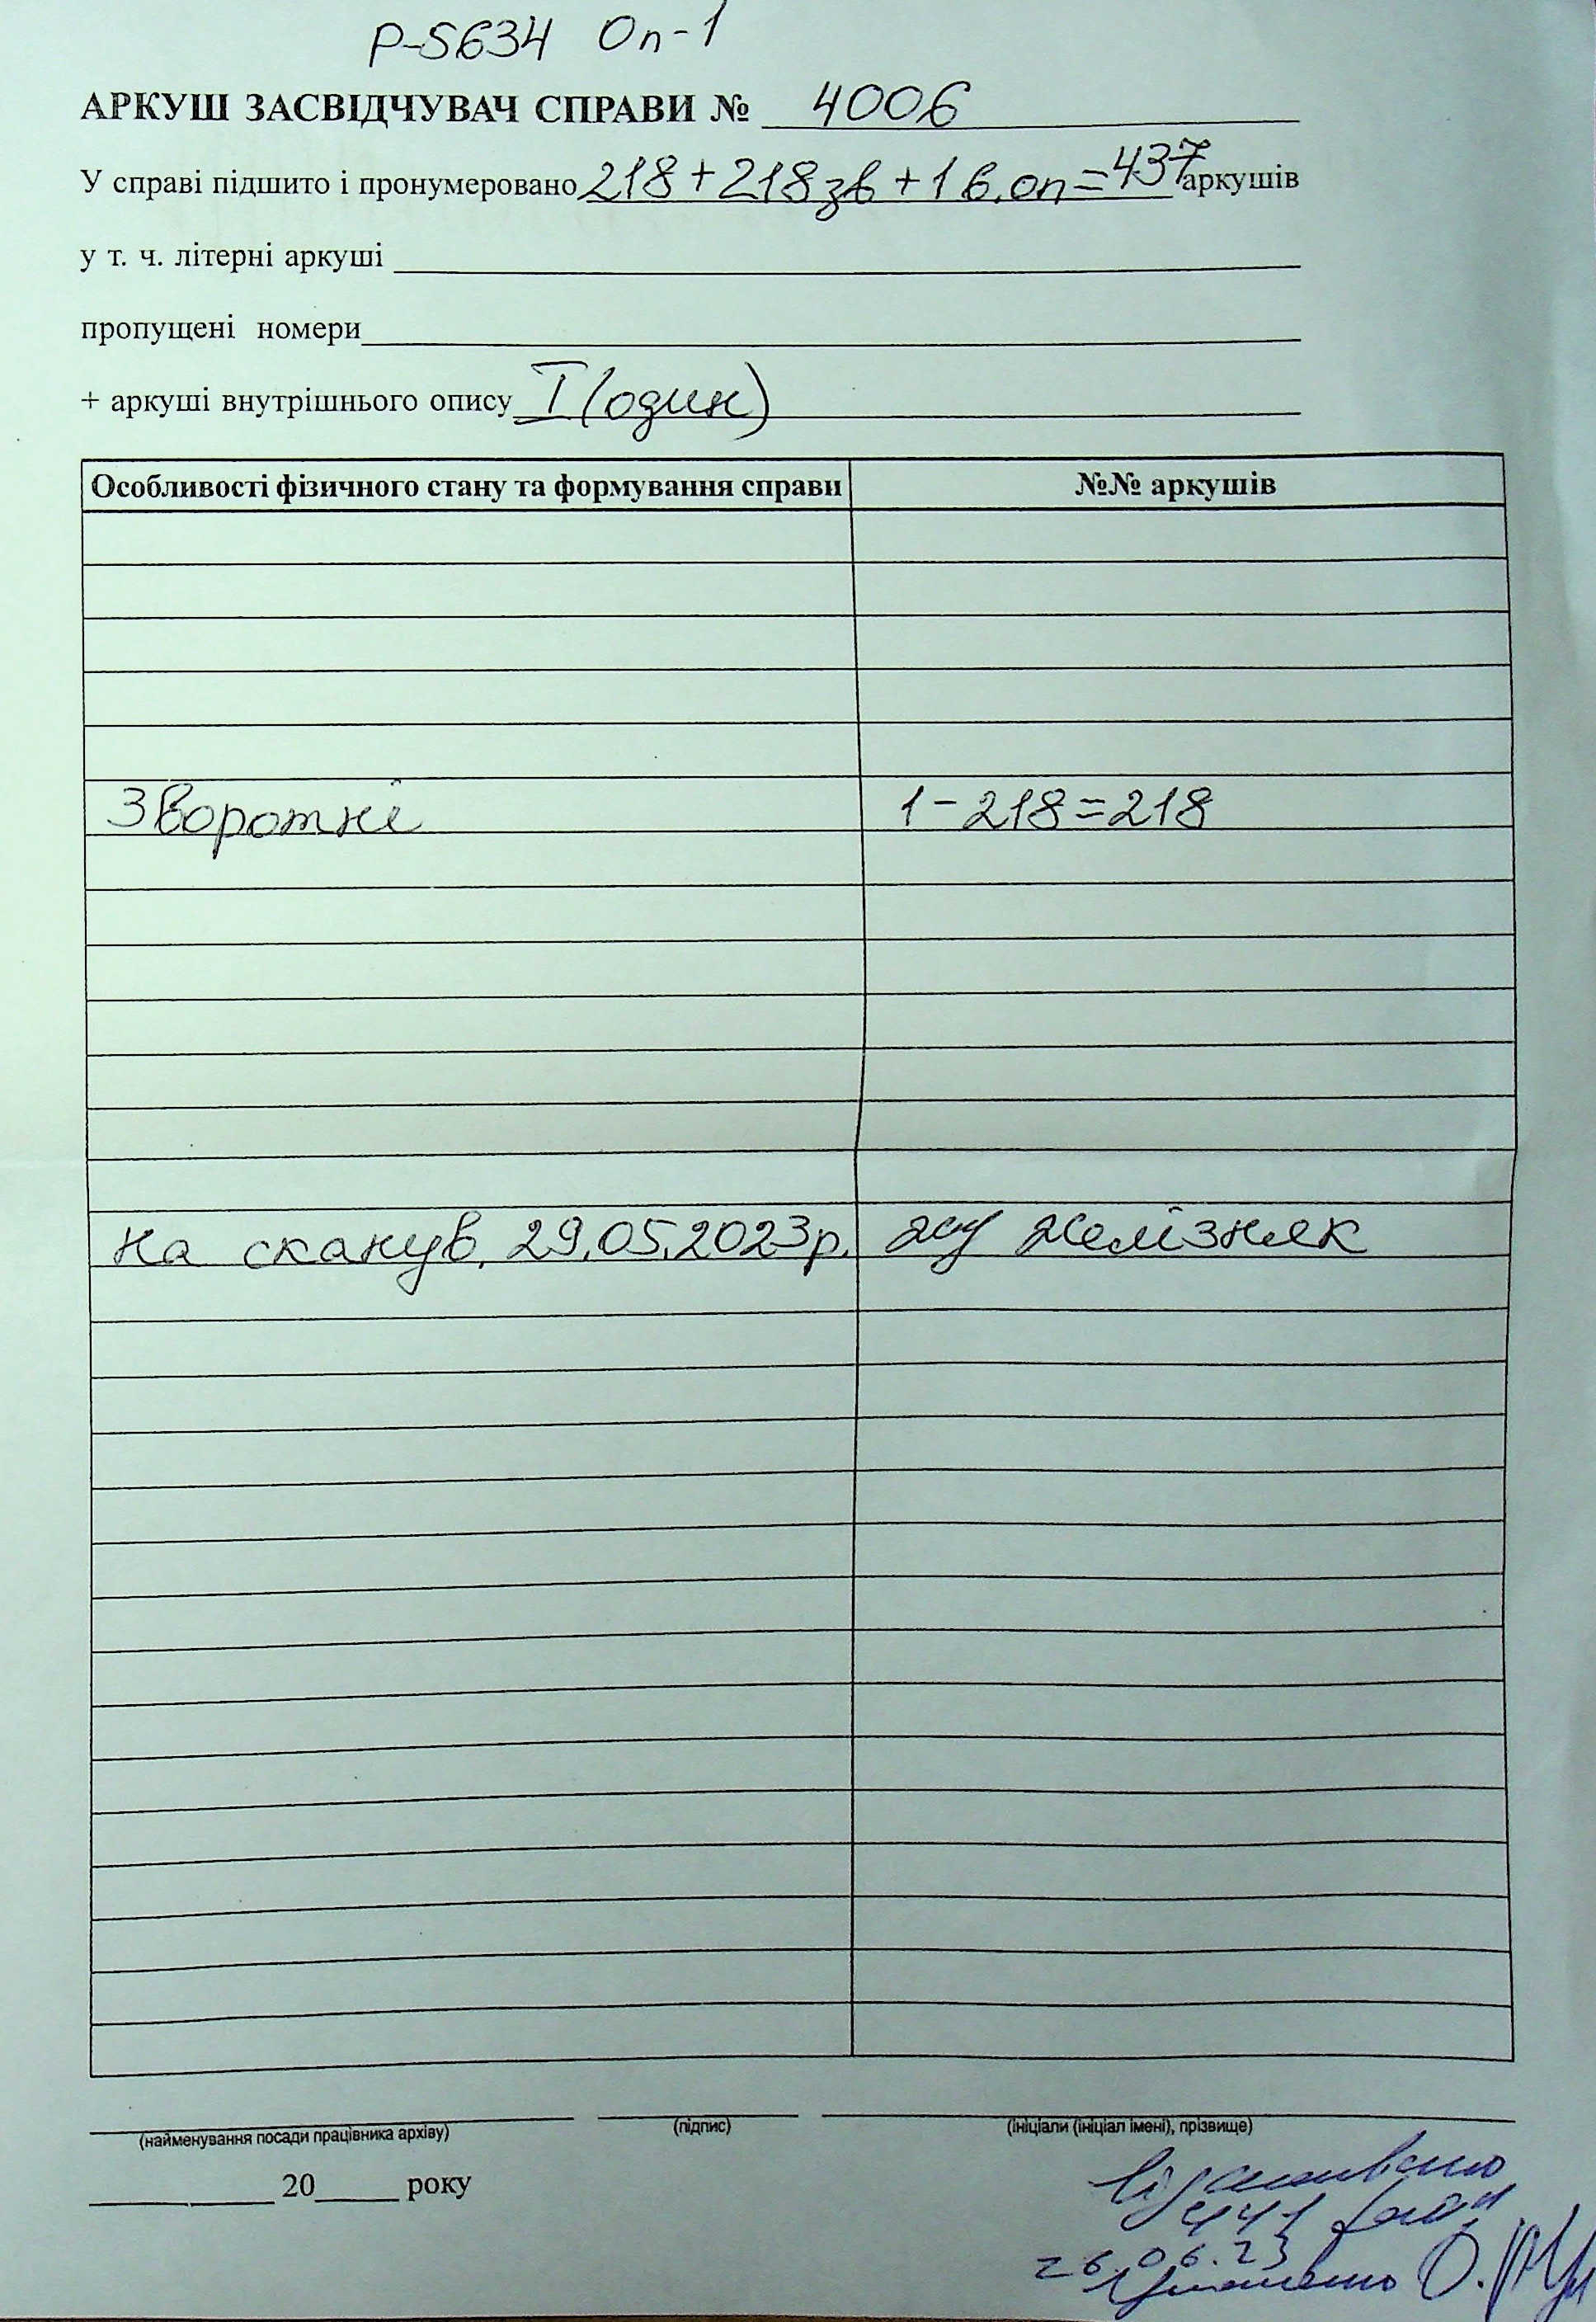 Р-5634 Оп-1
АРКУШ ЗАСВІДЧУВАЧ СПРАВИ № 4006
У справі підшито і пронумеровано 218+218зв+1в.оп=437 аркушів
у т. ч. літерні аркуші
пропущені номери
+ аркуші внутрішнього опису I (один)
Особливості фізичного стану та формування справи №№ аркушів
Зворотні 1-218=218
на сканув. 29.05.2023р. Желізняк
(найменування посади працівника архіву) (підпис) (ініціали (ініціал імені), прізвище)
20 року
441
26.06.23
О.